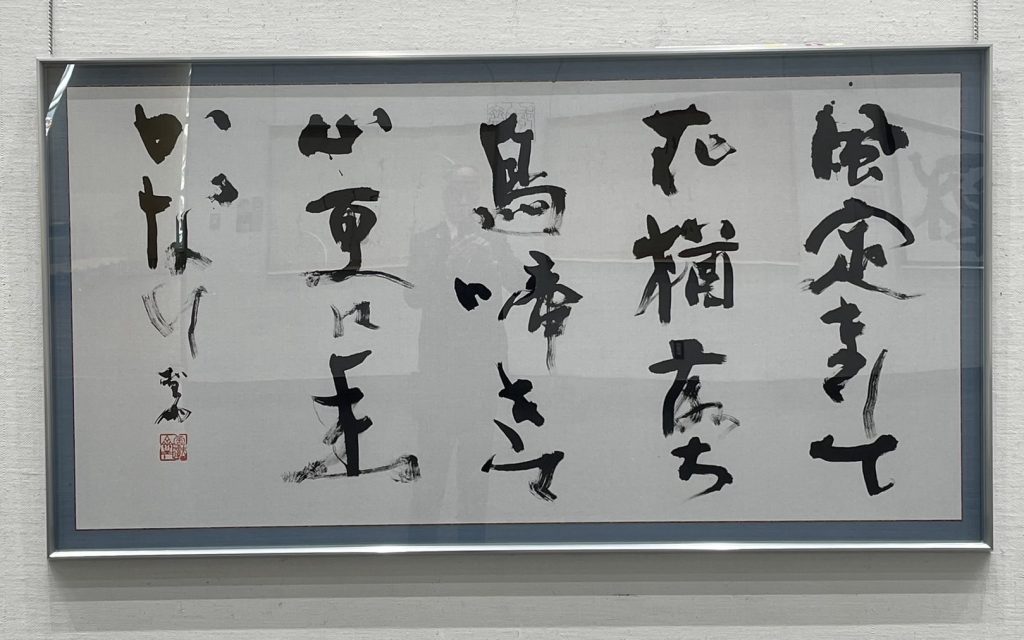 風定まりて
花猶落ち
鳥啼きて
山更に幽
かなり